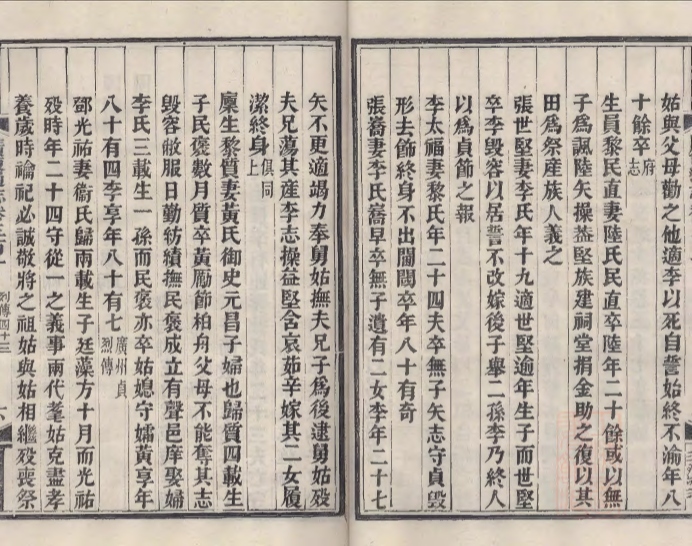 姑與父母勸之他適李以死自誓始終不渝年八
十餘卒府志
生員黎民直妻陸氏民直卒陸年二十餘或以無
子爲諷陸矢操益堅族建祠堂捐金助之復以其
田爲祭産族人義之
張世堅妻李氏年十九適世堅逾年生子而世堅
卒李毁容以居誓不改嫁後子舉二孫李乃終人
以爲貞節之報
李太福妻黎氏年二十四夫卒無子矢志守貞毁
形去飾終身不出閨閫卒年八十有奇
張喬妻李氏喬早卒無子遺有二女李年二十七
矢不更適竭力奉舅姑撫夫兄子爲後逮舅姑殁
夫兄蕩其産李志操益堅含哀茹辛嫁其二女履
潔終身俱同上
廩生黎質妻黃氏御史元昌子婦也歸質四載生
子民褒數月質卒黃勵節柏舟父母不能奪其志
毁容敝服日勤紡績撫民褒成立有聲邑庠娶婦
李氏三載生一孫而民褒亦卒姑媳守孀黃享年
八十有四李享年八十有七廣州貞烈傳
鄧光祐妻衞氏歸兩載生子廷藻方十月而光祐
殁時年二十四守從一之義事兩代耄姑克盡孝
養歲時禴祀必誠敬將之祖姑與姑相繼殁喪祭
列傳四十三
六